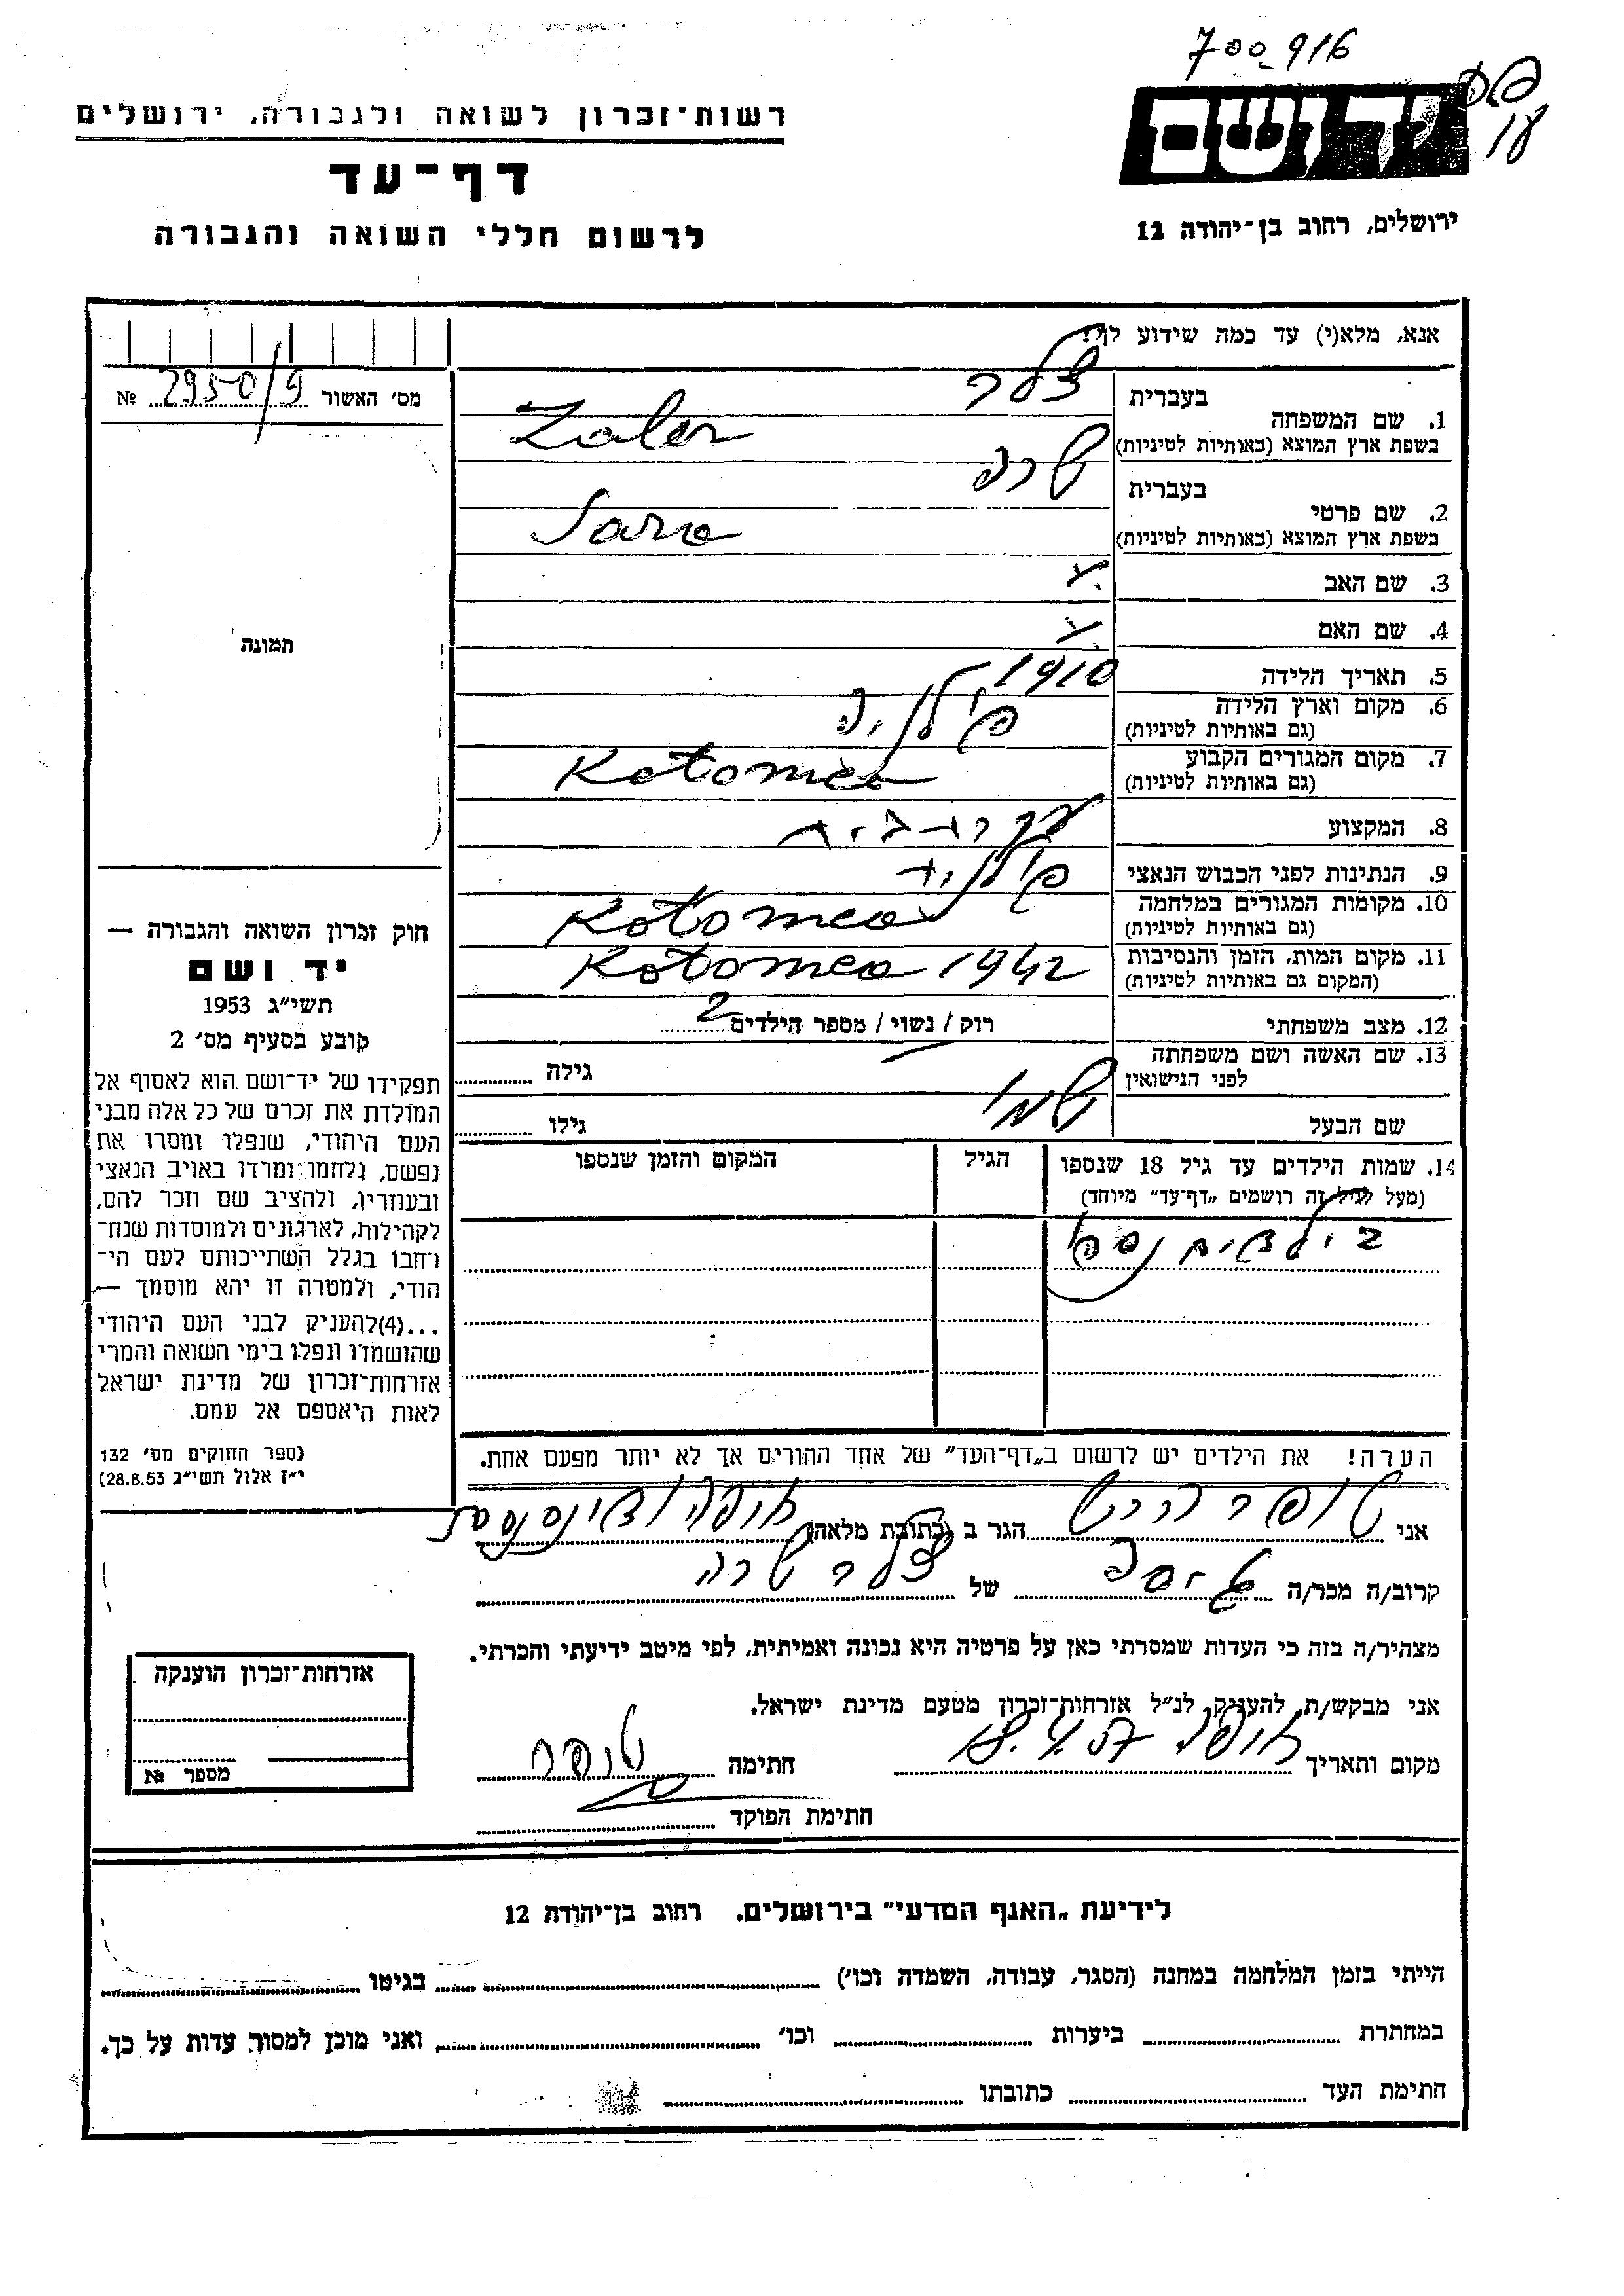 700916
רשות־זכרון לשואה ולגבורה, ירושלים
יד ושם
דף־עד
לרשום חללי השואה והגבורה
ירושלים, רחוב בן־יהודה 12
אנא, מלא(י) עד כמה שידוע לך!
מס׳ האשור 2950/9 №
תמונה
1. שם המשפחה
בעברית צלר
בשפת ארץ המוצא (באותיות לטיניות) Zaler
2. שם פרטי
בעברית שרה
בשפת ארץ המוצא (באותיות לטיניות) Sara
3. שם האב
4. שם האם
5. תאריך הלידה 1910
6. מקום וארץ הלידה פולניה
(גם באותיות לטיניות)
7. מקום המגורים הקבוע Kotomea
(גם באותיות לטיניות)
8. המקצוע עקרת בית
9. הנתינות לפני הכבוש הנאצי
10. מקומות המגורים במלחמה Kotomea
(גם באותיות לטיניות)
11. מקום המות, הזמן והנסיבות Kotomea 1942
(המקום גם באותיות לטיניות)
12. מצב משפחתי רוק / נשוי / מספר הילדים 2
13. שם האשה ושם משפחתה
לפני הנישואין גילה
שם הבעל גילו
14. שמות הילדים עד גיל 18 שנספו הגיל המקום והזמן שנספו
(מעל לגיל זה רושמים „דף־עד” מיוחד)
2 ילדים נספו
הערה! את הילדים יש לרשום ב„דף־העד” של אחד ההורים אך לא יותר מפעם אחת.
חוק זכרון השואה והגבורה —
יד ושם
תשי״ג 1953
קובע בסעיף מס׳ 2
תפקידו של יד־ושם הוא לאסוף אל
המולדת את זכרם של כל אלה מבני
העם היהודי, שנפלו ומסרו את
נפשם, נלחמו ומרדו באויב הנאצי
ובעוזריו, ולהציב שם וזכר להם,
לקהילות, לארגונים ולמוסדות שנח־
רחבו בגלל השתייכותם לעם הי־
הודי, ולמטרה זו יהא מוסמך —
...(4)להעניק לבני העם היהודי
שהושמדו ונפלו בימי השואה והמרי
אזרחות־זכרון של מדינת ישראל
לאות היאספם אל עמם.
(ספר החוקים מס׳ 132
י״ז אלול תשי״ג 28.8.53)
אני הגר ב (כתובת מלאה)
קרוב/ה מכר/ה גיסה של צלר שרה
מצהיר/ה בזה כי העדות שמסרתי כאן על פרטיה היא נכונה ואמיתית, לפי מיטב ידיעתי והכרתי.
אני מבקש/ת להעניק לנ״ל אזרחות־זכרון מטעם מדינת ישראל.
מקום ותאריך 18.4.57 חתימה
חתימת הפוקד
אזרחות־זכרון הוענקה
מספר №
לידיעת „האגף המדעי” בירושלים. רחוב בן־יהודה 12
הייתי בזמן המלחמה במחנה (הסגר, עבודה, השמדה וכו׳) בגיטו
במחתרת ביערות וכו׳ ואני מוכן למסור עדות על כך.
חתימת העד כתובתו